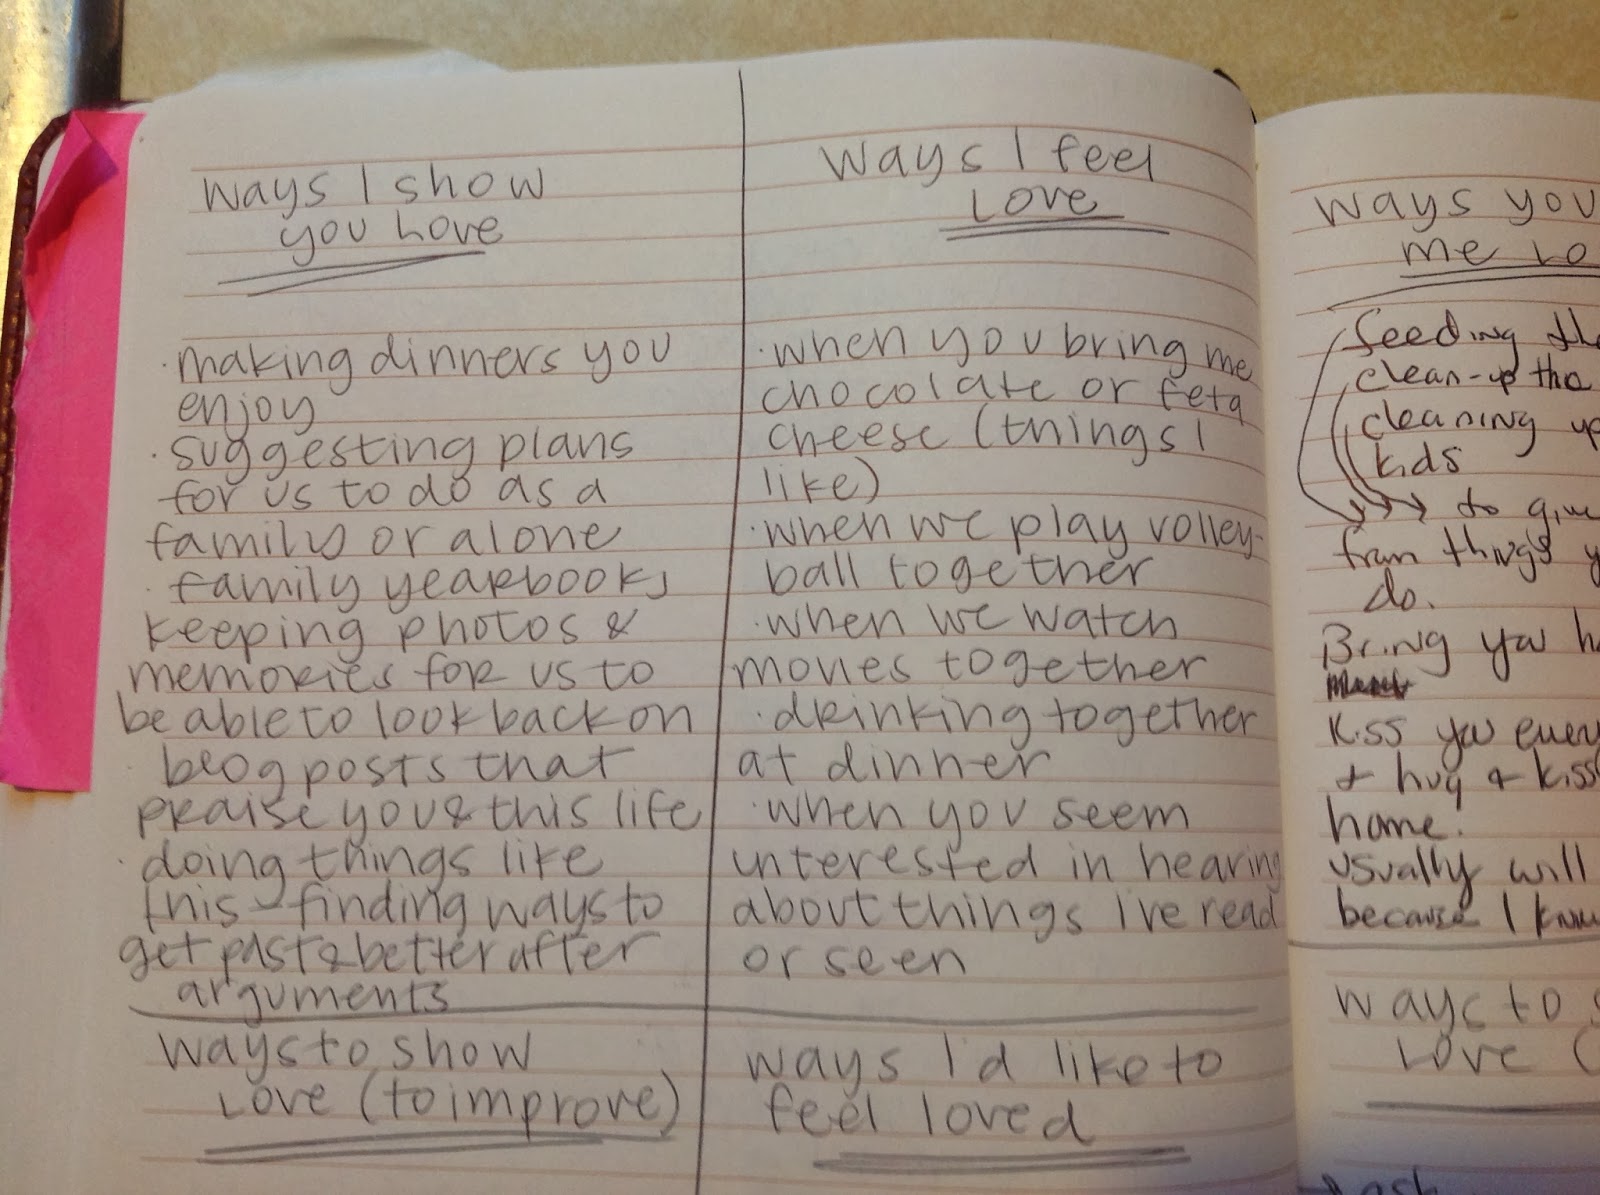 ways I show
you Love
· making dinners you
enjoy
· suggesting plans
for us to do as a
family or alone
· family yearbooks
keeping photos &
memories for us to
be able to look back on
blog posts that
praise you & this life
· doing things like
this - finding ways to
get past & better after
arguments
ways to show
Love (to improve)
ways I feel
Love
· when you bring me
chocolate or feta
cheese (things I
like)
· when we play volley-
ball together
· when we watch
movies together
· drinking together
at dinner
· when you seem
interested in hearing
about things I've read
or seen
ways I'd like to
feel loved
ways you
me Lo
feeding the
clean-up the
cleaning up
kids
to give
from things y
do.
Bring you h
Kiss you every
+ hug + kiss
home.
usually will
because I know
ways to s
Love (
ask